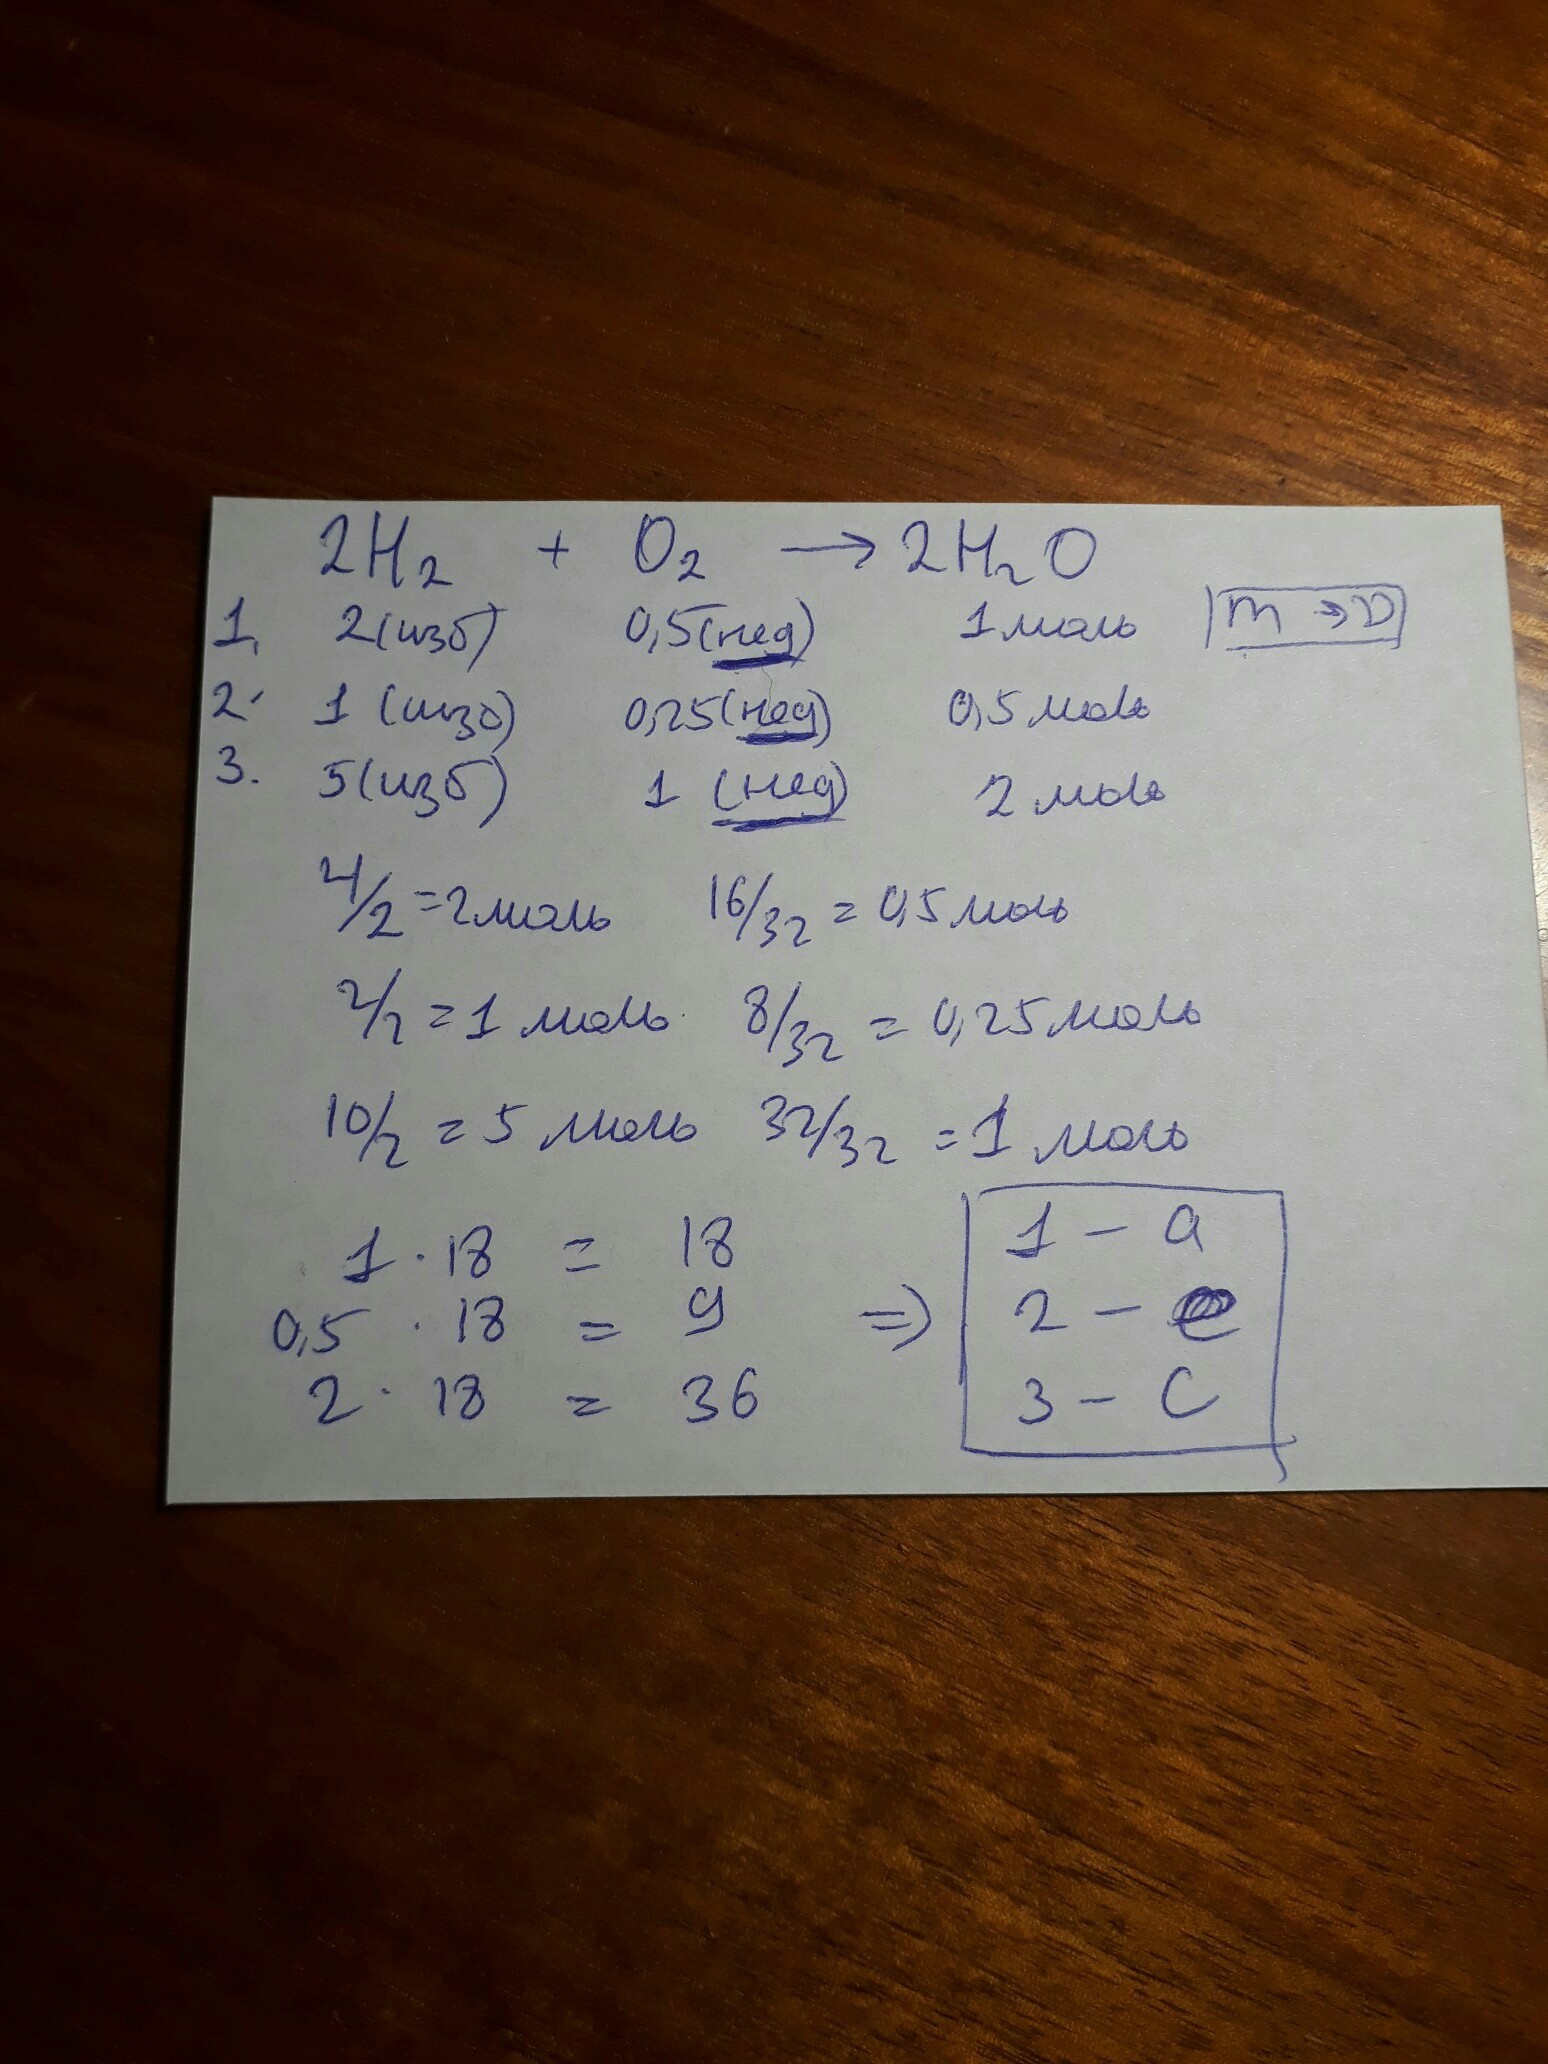 2H₂ + O₂ → 2H₂O
1. 2(изб) 0,5(нед) 1 моль m → ν
2. 1 (изб) 0,25(нед) 0,5 моль
3. 5(изб) 1 (нед) 2 моль
4/2 = 2 моль 16/32 = 0,5 моль
2/2 = 1 моль 8/32 = 0,25 моль
10/2 = 5 моль 32/32 = 1 моль
1 · 18 = 18 1 – a
0,5 · 18 = 9 => 2 – e
2 · 18 = 36 3 – c